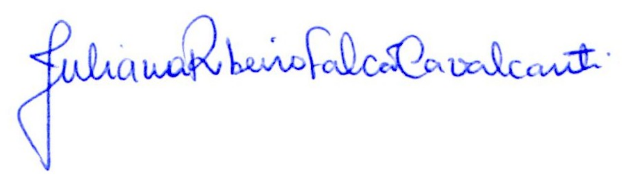 Juliana Ribeiro Falcão Cavalcanti